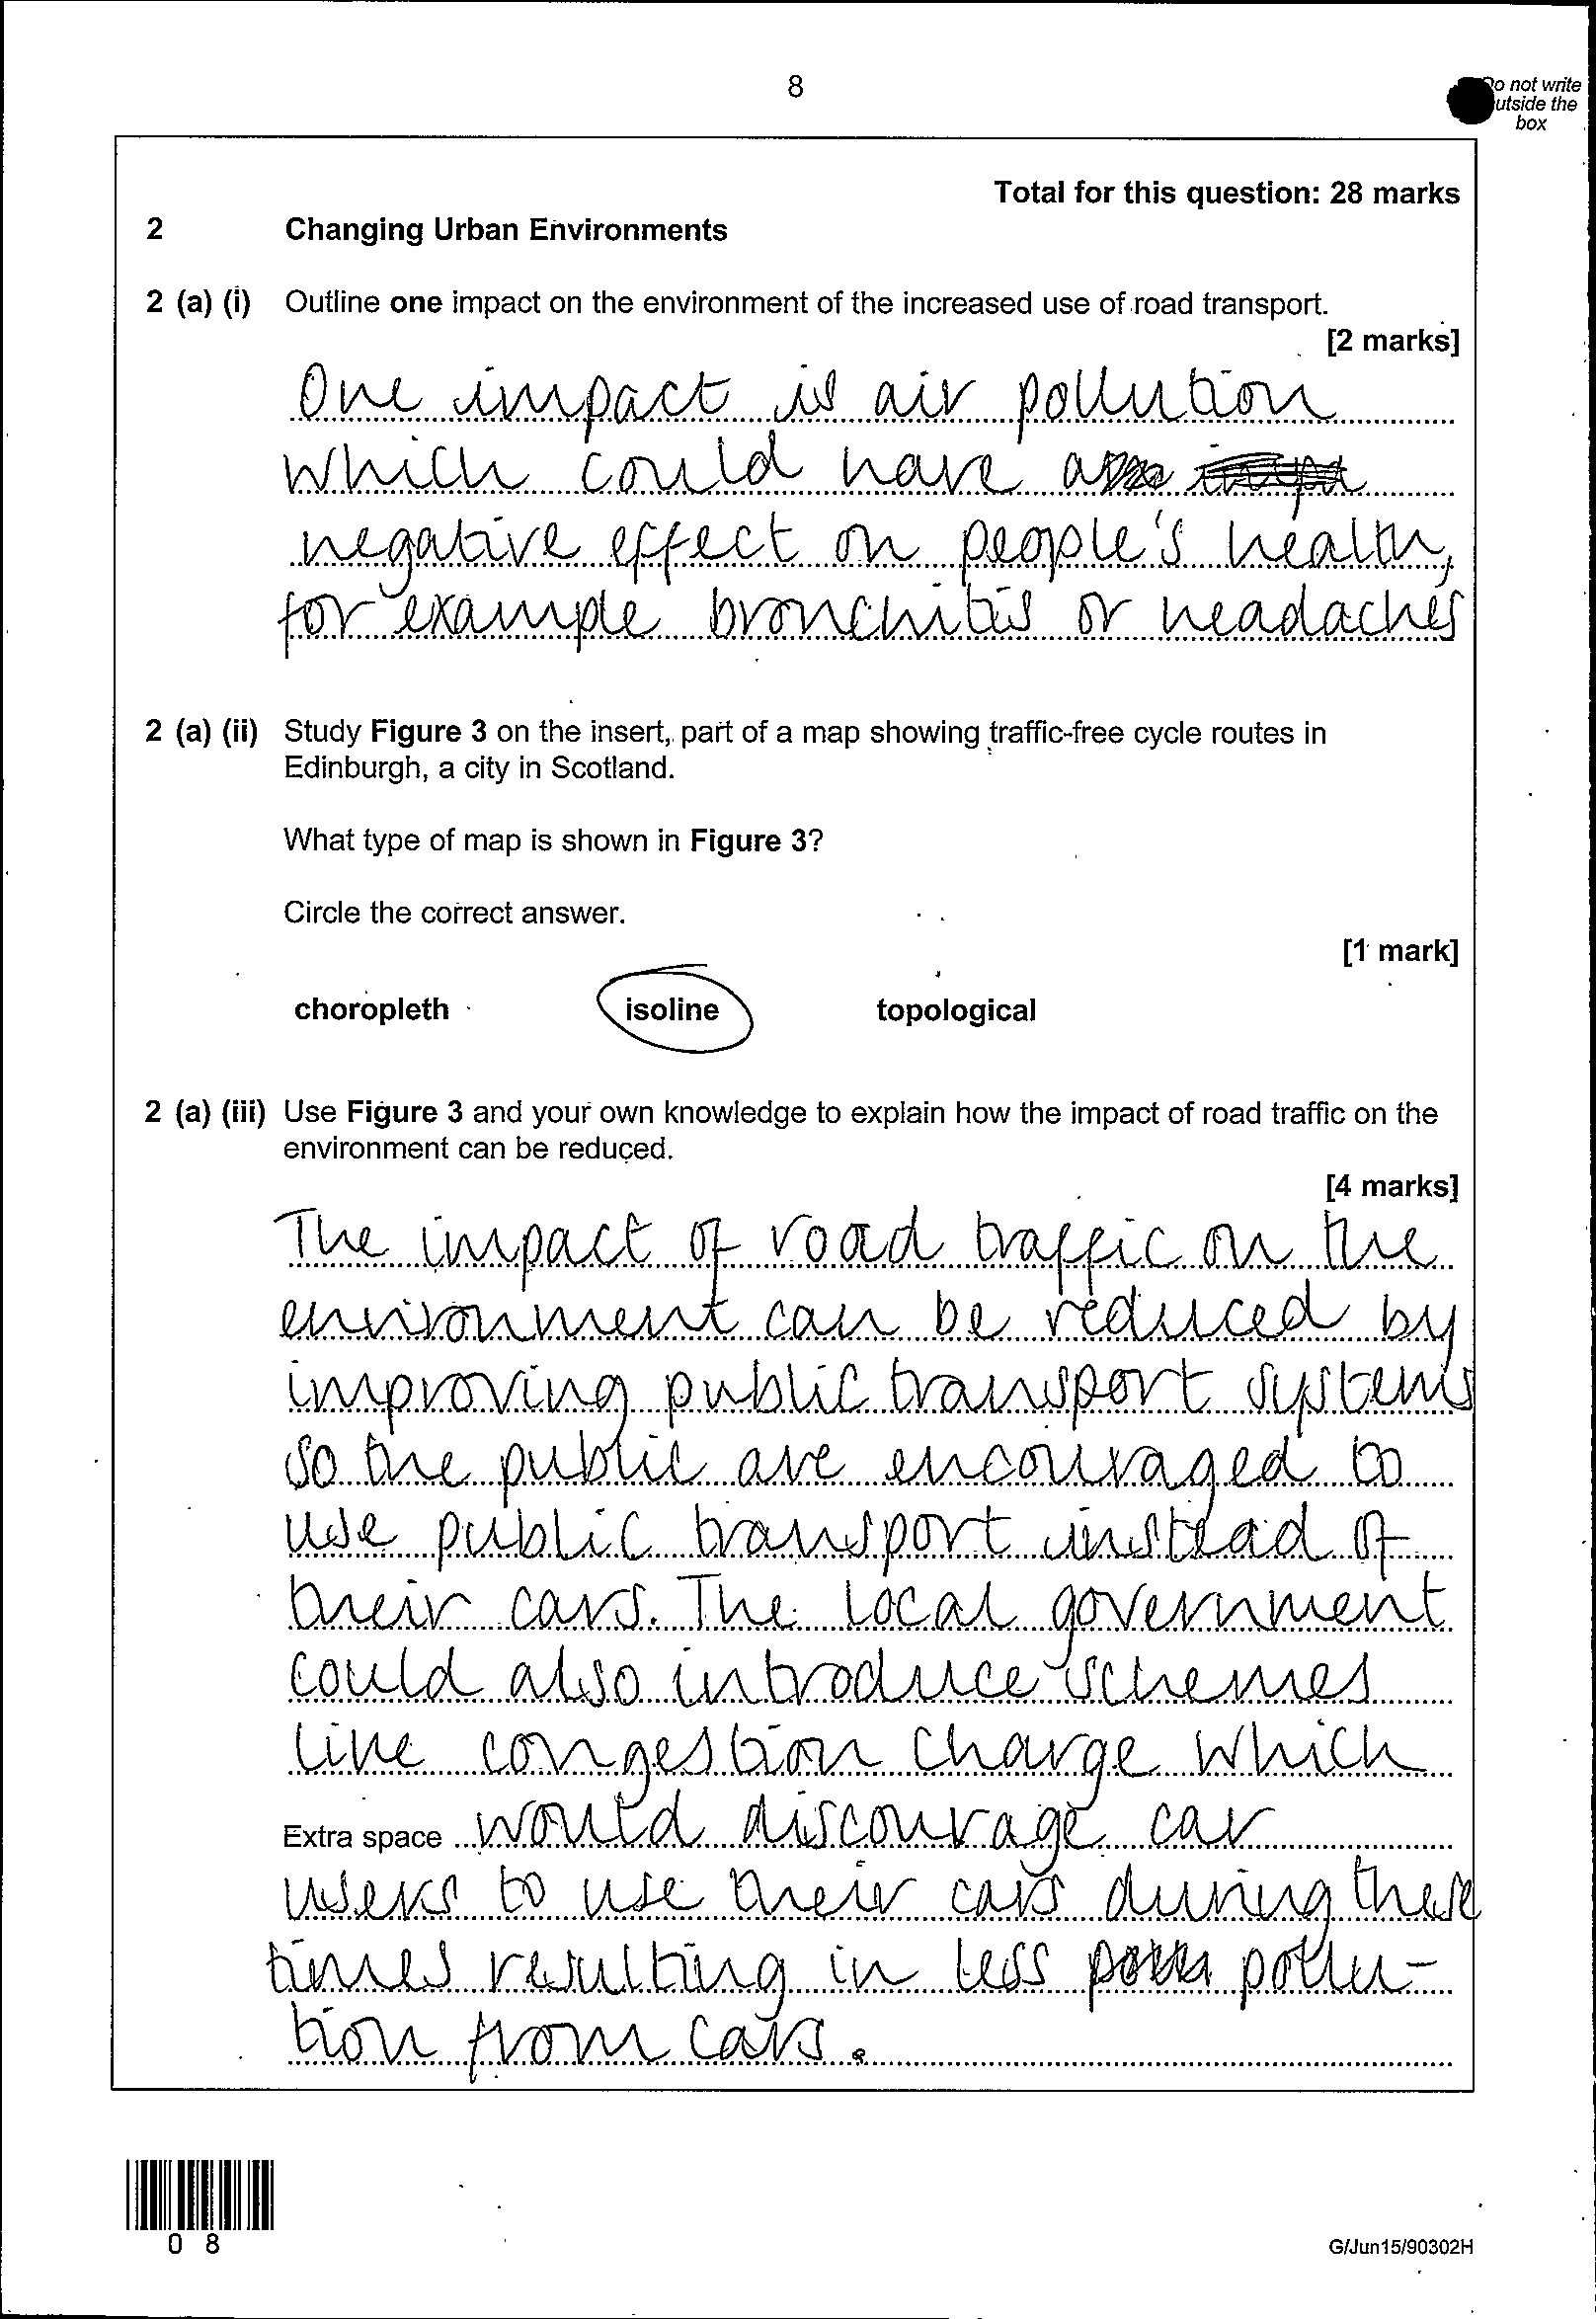 8
Do not write
outside the
box
Total for this question: 28 marks
2 Changing Urban Environments
2 (a) (i) Outline one impact on the environment of the increased use of road transport.
[2 marks]
One impact is air pollution
which could have a
negative effect on people's health,
for example bronchitis or headaches
2 (a) (ii) Study Figure 3 on the insert, part of a map showing traffic-free cycle routes in
Edinburgh, a city in Scotland.
What type of map is shown in Figure 3?
Circle the correct answer.
[1 mark]
choropleth isoline topological
2 (a) (iii) Use Figure 3 and your own knowledge to explain how the impact of road traffic on the
environment can be reduced.
[4 marks]
The impact of road traffic on the
environment can be reduced by
improving public transport systems
so the public are encouraged to
use public transport instead of
their cars. The local government
could also introduce schemes
like congestion charge which
Extra space would discourage car
users to use their cars during these
times resulting in less pollu-
tion from cars.
0 8
G/Jun15/90302H